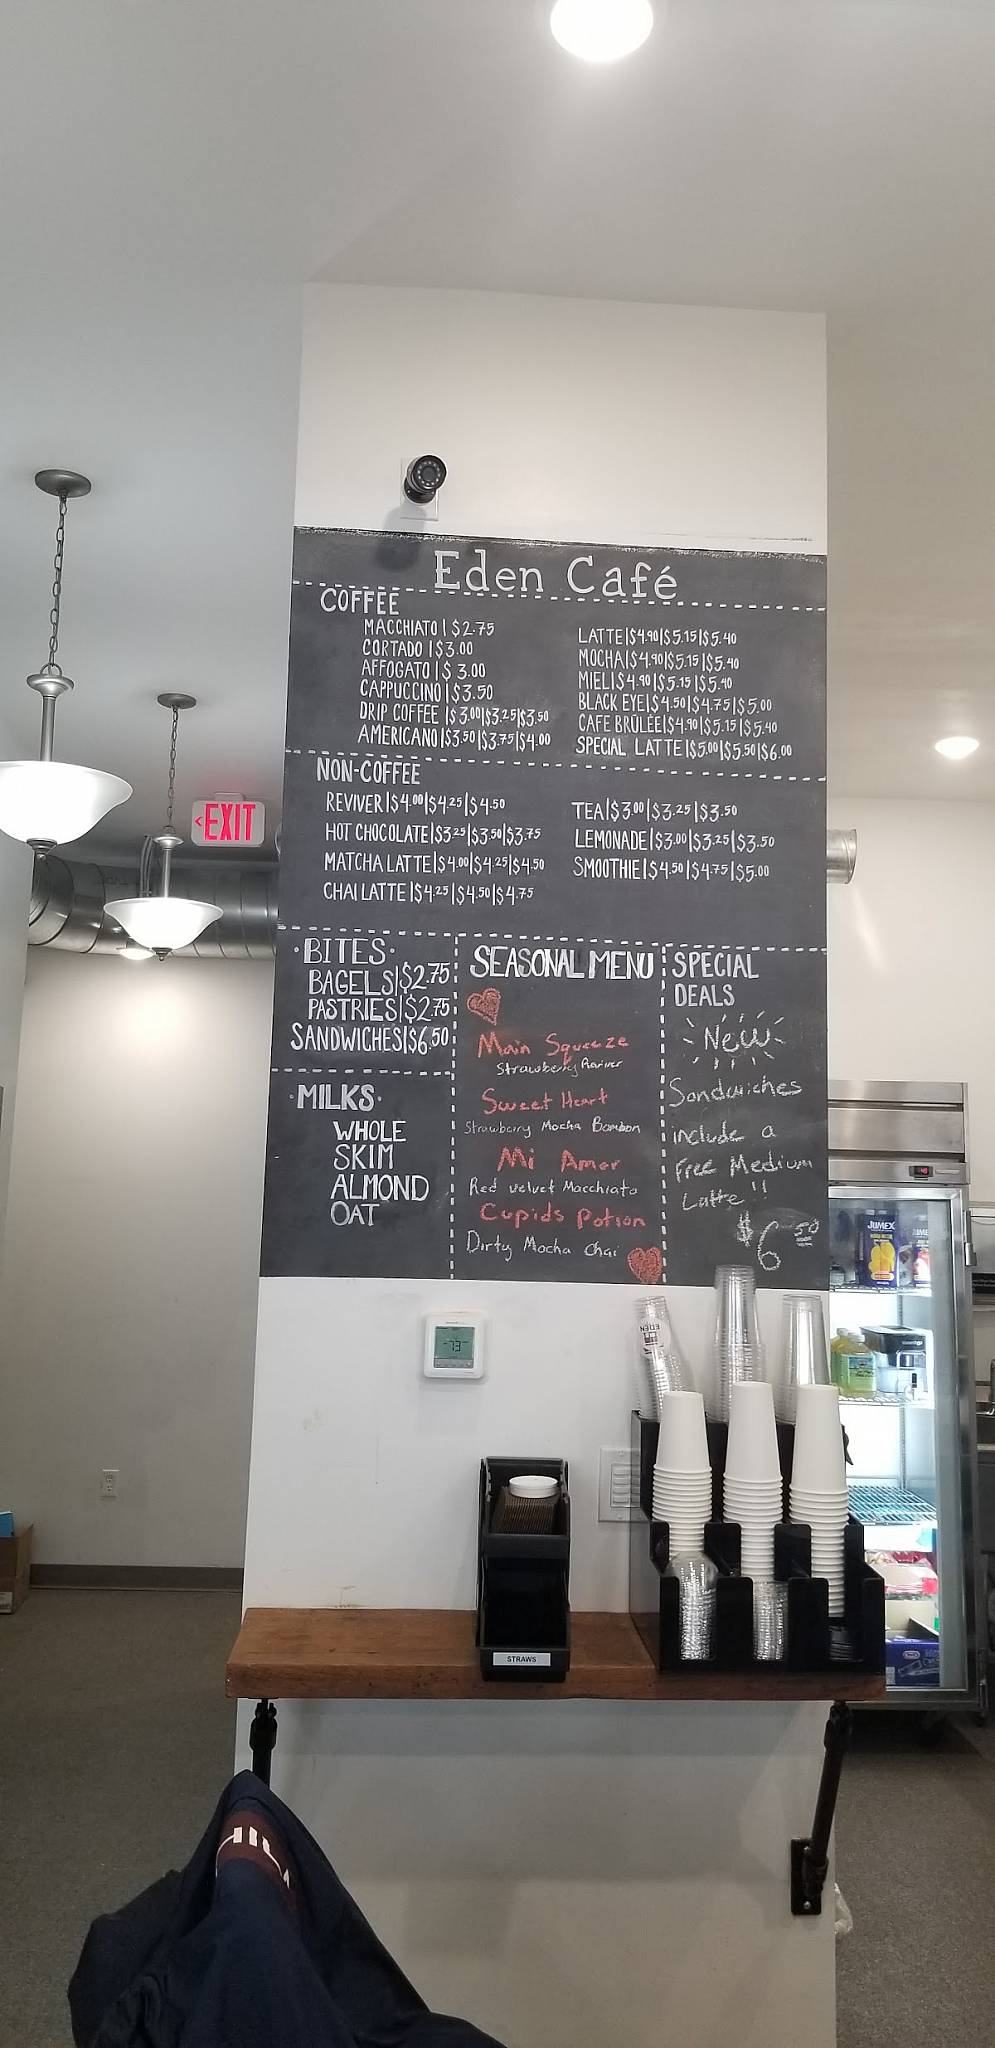 Eden Café
COFFEE
MACCHIATO | $2.75
CORTADO | $3.00
AFFOGATO | $3.00
CAPPUCCINO | $3.50
DRIP COFFEE | $3.00 | $3.25 | $3.50
AMERICANO | $3.50 | $3.75 | $4.00
LATTE | $4.90 | $5.15 | $5.40
MOCHA | $4.90 | $5.15 | $5.40
MIEL | $4.90 | $5.15 | $5.40
BLACK EYE | $4.50 | $4.75 | $5.00
CAFE BRÛLÉE | $4.90 | $5.15 | $5.40
SPECIAL LATTE | $5.00 | $5.50 | $6.00
NON-COFFEE
REVIVER | $4.00 | $4.25 | $4.50
HOT CHOCOLATE | $3.25 | $3.50 | $3.75
MATCHA LATTE | $4.00 | $4.25 | $4.50
CHAI LATTE | $4.25 | $4.50 | $4.75
TEA | $3.00 | $3.25 | $3.50
LEMONADE | $3.00 | $3.25 | $3.50
SMOOTHIE | $4.50 | $4.75 | $5.00
<EXIT
·BITES·
BAGELS | $2.75
PASTRIES | $2.75
SANDWICHES | $6.50
·MILKS·
WHOLE
SKIM
ALMOND
OAT
SEASONAL MENU
Main Squeeze
Strawberry Reviver
Sweet Heart
Strawberry Mocha Bonbon
Mi Amor
Red velvet Macchiato
Cupids Potion
Dirty Mocha Chai
SPECIAL
DEALS
New
Sandwiches
include a
Free Medium
Latte!!
$6.50
JUMEX
EDEN
73
STRAWS